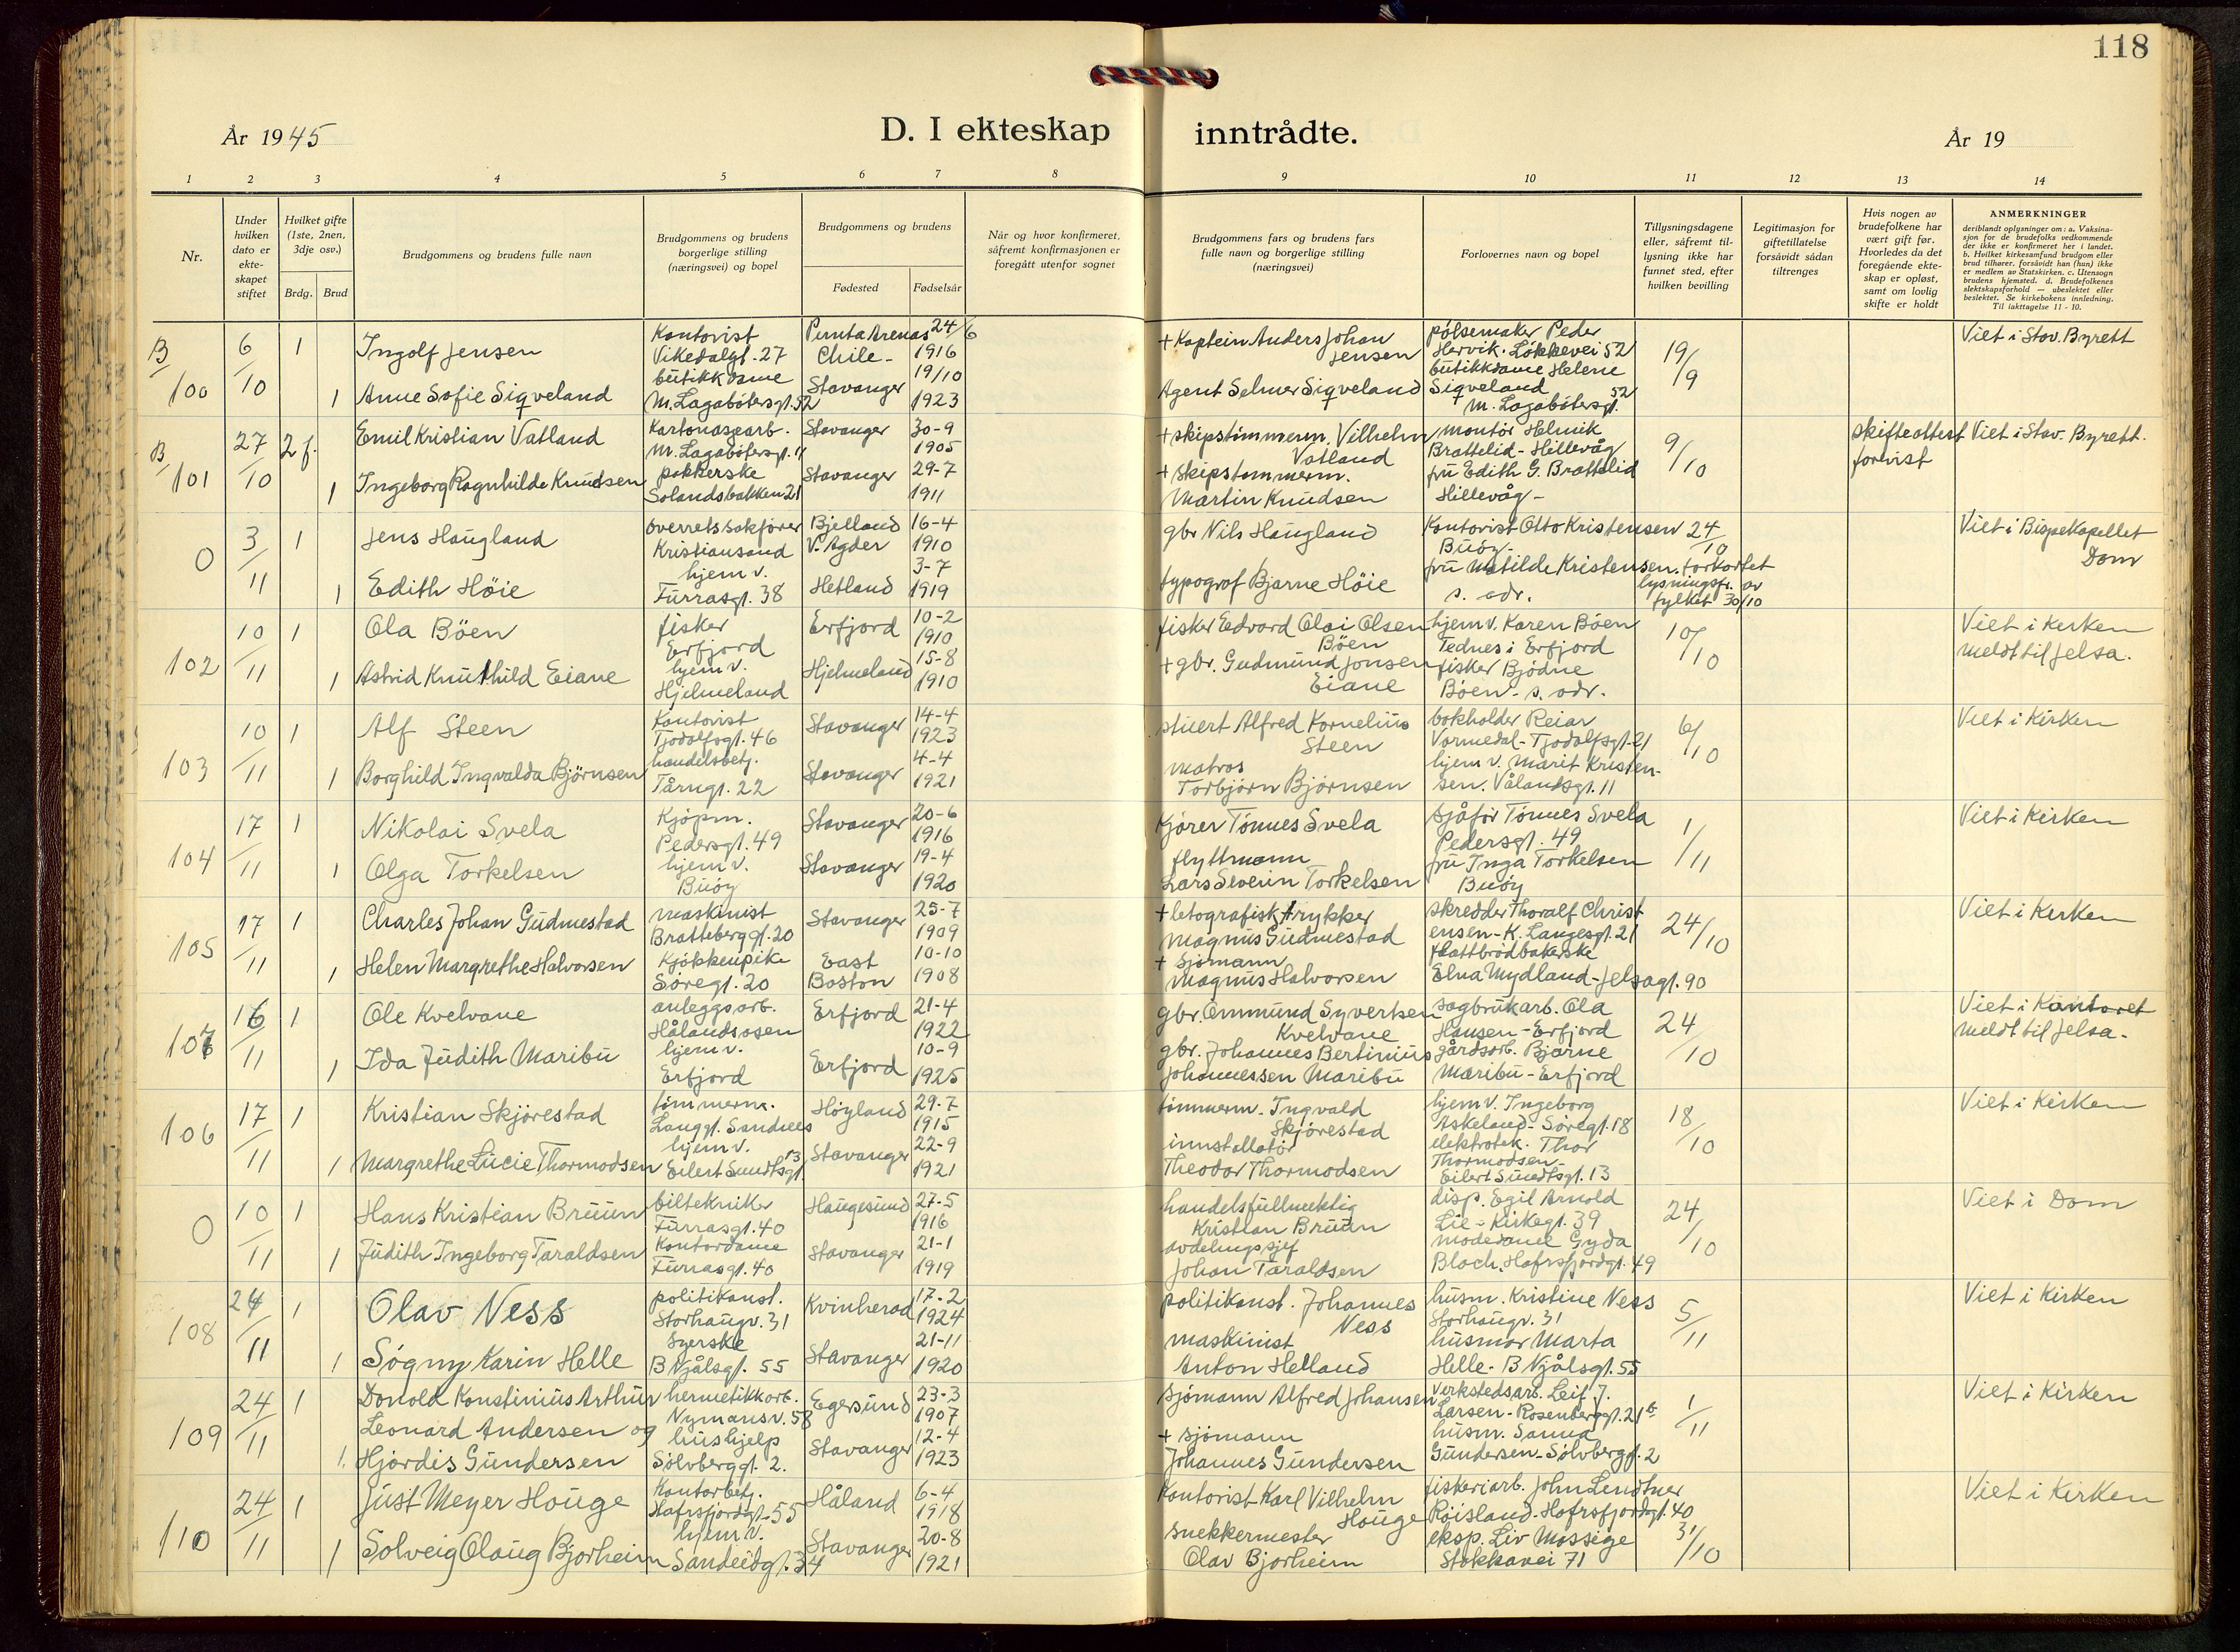 118
År 1945
D. I ekteskap inntrådte.
År 19
1 2 3 4 5 6 7 8 9 10 11 12 13 14
Nr.
Under hvilken dato er ekte-skapet stiftet
Hvilket gifte (1ste, 2nen, 3dje osv.)
Brdg. Brud
Brudgommens og brudens fulle navn
Brudgommens og brudens borgerlige stilling (næringsvei) og bopel
Brudgommens og brudens
Fødested Fødselsår
Når og hvor konfirmeret, såfremt konfirmasjonen er foregått utenfor sognet
Brudgommens fars og brudens fars fulle navn og borgerlige stilling (næringsvei)
Forlovernes navn og bopel
Tillysningsdagene eller, såfremt til-lysning ikke har funnet sted, efter hvilken bevilling
Legitimasjon for giftetillatelse forsåvidt sådan tiltrenges
Hvis nogen av brudefolkene har vært gift før. Hvorledes da det foregående ekte-skap er opløst, samt om lovlig skifte er holdt
ANMERKNINGER
deriblandt oplysninger om: a. Vaksina-sjon for de brudefolks vedkommende der ikke er konfirmeret her i landet. b. Hvilket kirkesamfund brudgom eller brud tilhører, forsåvidt han (hun) ikke er medlem av Statskirken. c. Utensogn brudens hjemsted. d. Brudefolkenes slektskapsforhold — ubeslektet eller beslektet. Se kirkebokens innledning. Til iakttagelse 11 - 10.
B 100
6/10
1
Ingolf Jensen
Kontorist
Vikedalgt. 27
Punta Arenas
Chile -
24/6
1916
+ Kaptein Anders Johan
Jensen
pølsemaker Peder
Hervik. Løkkevei 52
19/9
Viet i Stav. Byrett
1
Anne Sofie Siqveland
butikkdame
M. Lagabøtersgt. 52
Stavanger
19/10
1923
Agent Selmer Siqveland
butikkdame Helene
Siqveland
M. Lagabøtersgt. 52
B 101
27/10
2 f.
Emil Kristian Vatland
Kartonasjearb.
M. Lagabøtersgt. 11
Stavanger
30-9
1905
+ skipstimmerm. Vilhelm
Vatland
montør Helmik
Brattelid - Hillevåg
9/10
skifteattest
forvist
Viet i Stav. Byrett.
1
Ingeborg Ragnhilde Knudsen
pakkerske
Solandsbakken 21
Stavanger
29-7
1911
+ skipstømmerm.
Martin Knudsen
fru Edith G. Brattelid
Hillevåg -
0
3/11
1
Jens Haugland
overretssakfører
Kristiansand
Bjelland
V. Agder
16-4
1910
gbr Nils Haugland
Kontorist Otto Kristensen
Buøy -
24/10
Viet i Bispekapellet
Dom
1
Edith Høie
hjem v.
Furrasgt. 38
Hetland
3-7
1919
typograf Bjarne Høie
fru Matilde Kristensen.
s. adr.
forkortet
lysningsfr. av
fylket 30/10
102
10/11
1
Ola Bøen
fisker
Erfjord
Erfjord
10-2
1910
fisker Edvard Olai Olsen
Bøen
hjem v. Karen Bøen
Tednes i Erfjord
10/10
Viet i Kirken
meldt til Jelsa.
1
Astrid Knuthild Eiane
hjem v.
Hjelmeland
Hjelmeland
15-8
1910
+ gbr. Gudmund Jonsen
Eiane
fisker Bjødne
Bøen - s. adr.
103
10/11
1
Alf Steen
Kontorist
Tjodolfsgt. 46
Stavanger
14-4
1923
stuert Alfred Kornelius
Steen
bokholder Reiar
Vormedal - Tjodolfsgt. 21
6/10
Viet i Kirken
1
Borghild Ingvalda Bjørnsen
handelsbetj.
Tårngt. 22
Stavanger
4-4
1921
matros
Torbjørn Bjørnsen
hjem v. Marit Kristen-
sen. Vålandsgt. 11
104
17/11
1
Nikolai Svela
Kjøpm.
Pedersgt. 49
Stavanger
20-6
1916
Kjører Tønnes Svela
sjåfør Tønnes Svela
Pedersgt. 49
1/11
Viet i Kirken
1
Olga Torkelsen
hjem v.
Buøy
Stavanger
19-4
1920
flyttmann
Lars Severin Torkelsen
fru Inga Torkelsen
Buøy
105
17/11
1
Charles Johan Gudmestad
maskinist
Bratteberggt. 20
Stavanger
25-7
1909
+ letografisk trykker
Magnus Gudmestad
skredder Thoralf Christ
ensen - K. Langesgt. 21
24/10
Viet i Kirken
1
Helen Margrethe Halvorsen
Kjøkkenpike
Søregt. 20
East
Boston
10-10
1908
+ Sjømann
Magnus Halvorsen
flattbrødbakerske
Elna Mydland - Jelsagt. 90
107
16/11
1
Ole Kvelvane
anleggsarb.
Hålandsosen
Erfjord
21-4
1922
gbr. Ommund Syvertsen
Kvelvane
sagbrukarb. Ola
Hausen - Erfjord
24/10
Viet i Kontoret
meldt til Jelsa.
1
Ida Judith Maribu
hjem v.
Erfjord
Erfjord
10-9
1925
gbr. Johannes Bertinius
Johannessen Maribu
gårdsarb. Bjarne
Maribu - Erfjord
106
17/11
1
Kristian Skjørestad
tømmerm.
Langgt. Sandnes
Høyland
29-7
1915
tømmerm. Ingvald
Skjørestad
hjem v. Ingeborg
Askeland - Søregt. 18
18/10
Viet i Kirken
1
Margrethe Lucie Thormodsen
hjem v.
Eilert Sundtsgt. 13
Stavanger
22-9
1921
innstallatør
Theodor Thormodsen
elektrotek. Thor
Thormodsen
Eilert Sundtsgt. 13
0
10/11
1
Hans Kristian Bruun
biltekniker
Furrasgt. 40
Haugesund
27-5
1916
handelsfullmektig
Kristian Bruun
disp. Egil Arnold
Lie - Kirkegt. 39
24/10
Viet i Dom
1
Judith Ingeborg Taraldsen
Kontordame
Furrasgt. 40
Stavanger
21-1
1919
avdelingssjef
Johan Taraldsen
motedame Gyda
Bloch. Hafrsfjordgt. 49
108
24/11
1
Olav Ness
politikonst.
Storhaugv. 31
Kvinherad
17-2
1924
politikonst. Johannes
Ness
husm. Kristine Ness
Storhaugv. 31
5/11
Viet i Kirken
1
Søgny Karin Helle
Syerske
B Njålsgt. 55
Stavanger
21-11
1920
maskinist
Anton Helland
husmor Marta
Helle - B Njålsgt. 55
109
24/11
1
Donold Konstinius Arthur
Leonard Andersen og
hermetikkarb.
Nymansv. 58
Egersund
23-3
1907
Sjømann Alfred Johansen
Verkstedsarb. Leif J.
Larsen - Rosenberggt. 21
1/11
Viet i Kirken
1.
Hjørdis Gundersen
hushjelp
Sølvberggt. 2.
Stavanger
12-4
1923
+ sjømann
Johannes Gundersen
husm. Sanna
Gundersen - Sølvberggt. 2
110
24/11
1
Just Meyer Houge
Kontorbetj.
Hafrsfjordgt. 55
Håland
6-4
1918
Kontorist Karl Vilhelm
Houge
fiskeriarb. John Lendtner
Røisland. Hafrsfjordgt. 40
31/10
Viet i Kirken
1
Solveig Olaug Bjorheim
hjem v.
Sandeidgt. 34
Stavanger
20-8
1921
snekkermester
Olav Bjorheim
eksp. Liv Mossige
Stokkavei 71